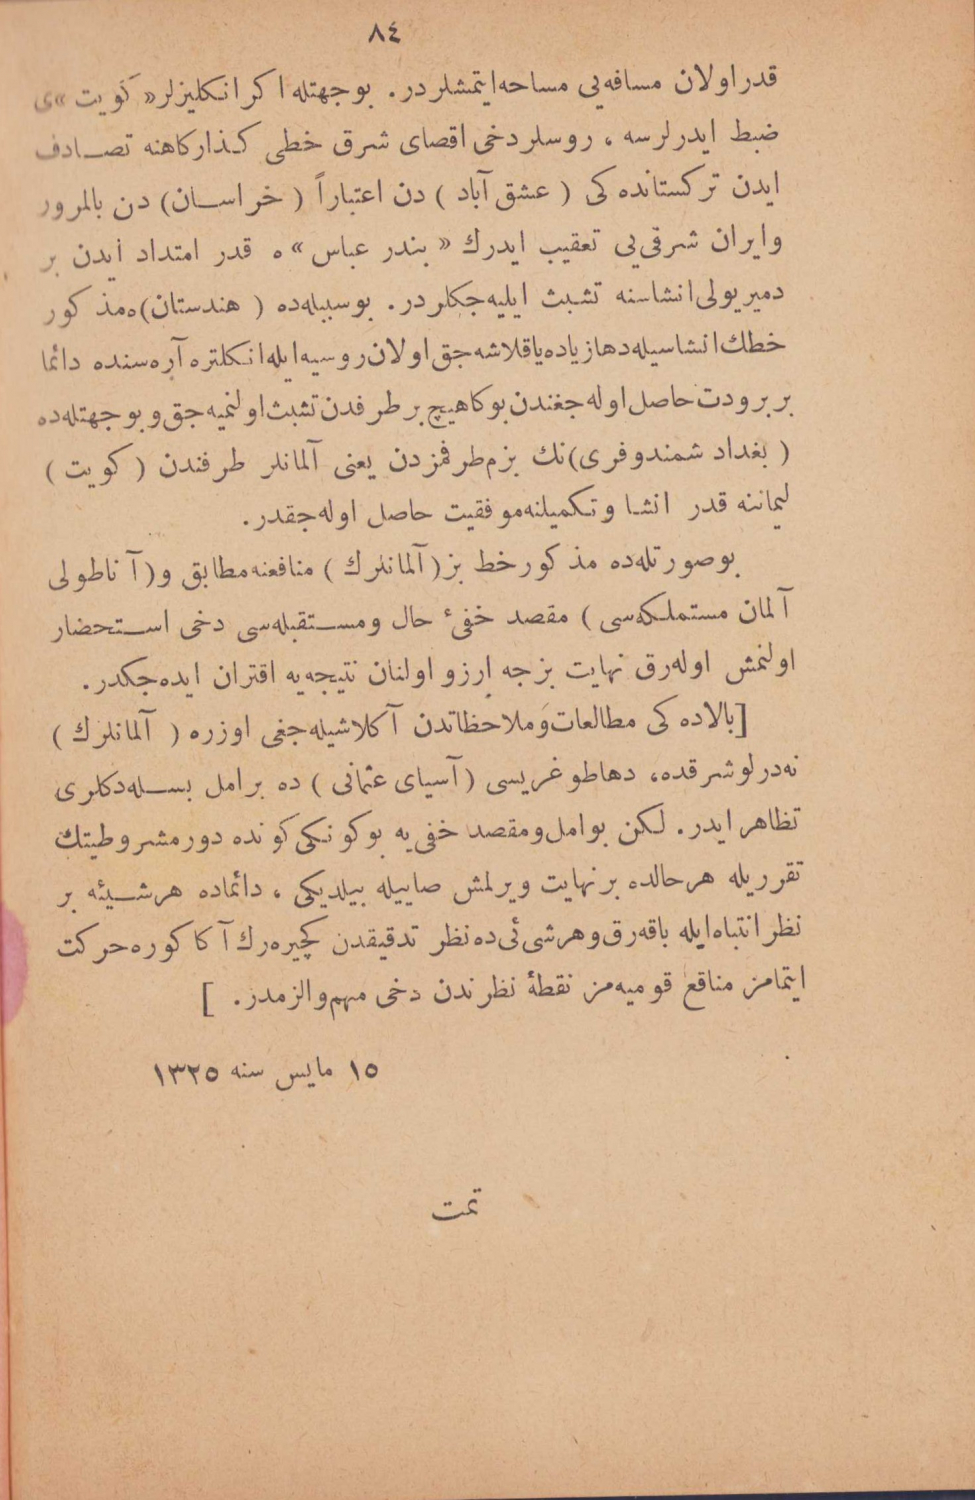 ٨٤
قدر اولان مسافه‌یی مساحه ایتمشلردر. بوجهتله اكر انكلیزلر « كویت » ی
ضبط ایدرلرسه ، روسلر دخی اقصای شرق خطی كذاركاهنه تصادف
ایدن تركستانده كی ( عشق آباد ) دن اعتباراً ( خراسان) دن بالمرور
وایران شرقی‌یی تعقیب ایدرك « بندر عباس » ه قدر امتداد ایدن بر
دمیریولی انشاسنه تشبث ایلیه‌جكلردر. بوسببله‌ده ( هندستان)ه مذكور
خطك انشاسیله دها زیاده یاقلاشه‌جق اولان روسیه ایله انكلتره آره‌سنده دائما
بر برودت حاصل اوله‌جغندن بوكا هیچ بر طرفدن تشبث اولنمیه‌جق و بوجهتله‌ده
( بغداد شمندوفری)نك بزم طرفمزدن یعنی آلمانلر طرفندن ( كویت )
لیماننه قدر انشا وتكمیلنه موفقیت حاصل اوله‌جقدر.
بوصورتله‌ده مذكور خط بز ( آلمانلرك ) منافعنه مطابق و ( آناطولی
آلمان مستملكه‌سی ) مقصد خفیٔ حال ومستقبله‌سی دخی استحضار
اولنمش اوله‌رق نهایت بزجه ارزو اولنان نتیجه‌یه اقتران ایده‌جكدر.
[بالاده كی مطالعات وملاحظاتدن آكلاشیله‌جغی اوزره ( آلمانلرك )
نه‌درلو شرقده، دها طوغریسی ( آسیای عثمانی ) ده بر امل بسله‌دكلری
تظاهر ایدر. لكن بو امل ومقصد خفی‌یه بوكونكی كونده دور مشروطیتك
تقرریله هرحالده بر نهایت ویرلمش صاییله بیلدیكی ، دائماده هرشیئه بر
نظر انتباه ایله باقه‌رق وهرشی‌ئی ده نظر تدقیقدن كچیره‌رك آكا كوره حركت
ایتمامز مناقع قومیه‌مز نقطهٔ نظرندن دخی مهم والزمدر. ]
١٥ مایس سنه ١٣٢٥
تمت